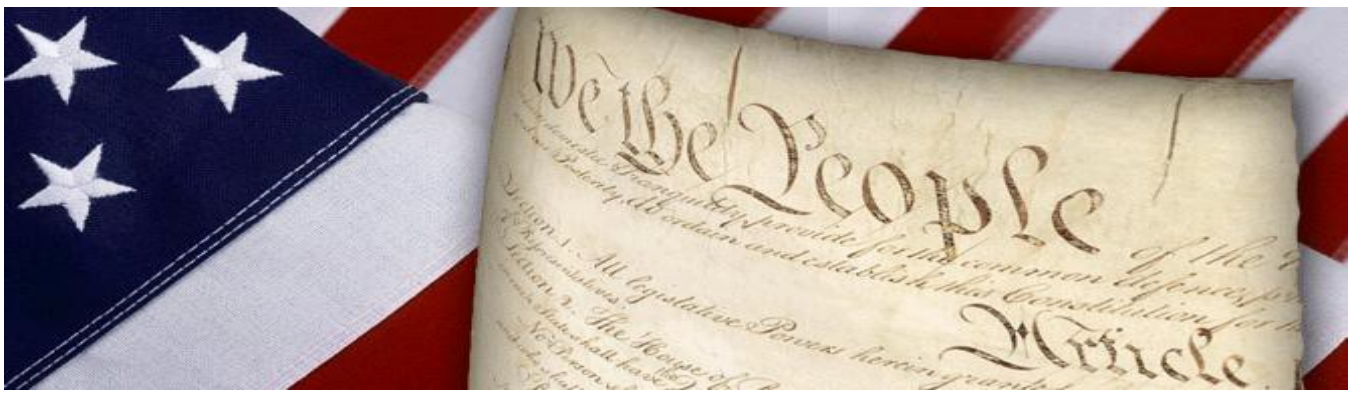 We the People of the
domestic Tranquility, provide for the common defence,
and our Posterity, do ordain and establish this Constitution for
Article.
Section. 1. All legislative Powers herein
of Representatives.
Section. 2. The House of
State shall have
No Person